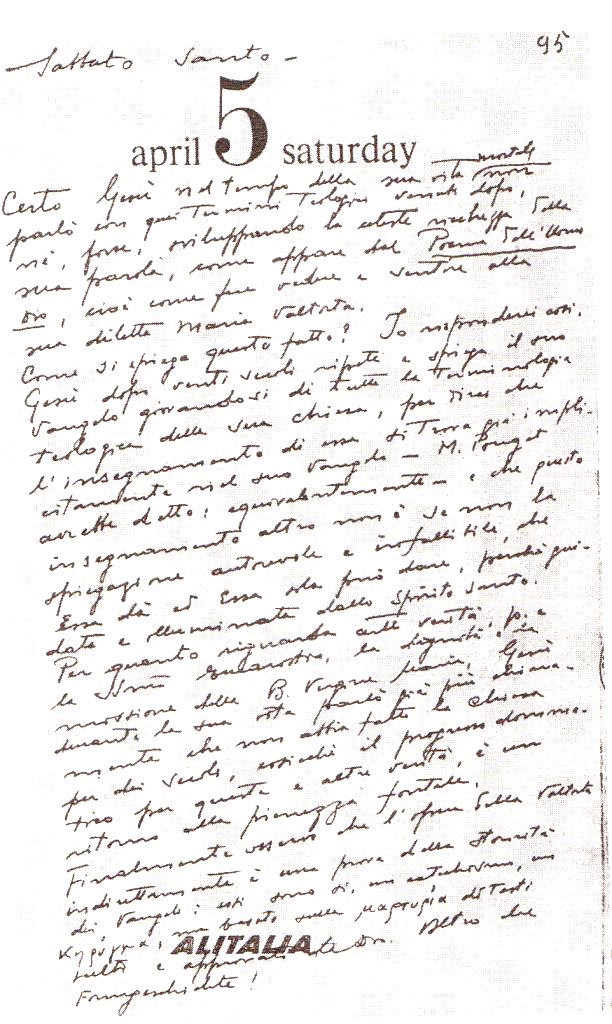 95
Sabbato Santo -
april 5 saturday
mortale
Certo Gesù nel tempo della sua vita non
parlò con quei termini teologici venuti dopo,
né, forse, sviluppando la celeste ricchezza della
sua parola, come appare dal Poema dell'Uomo
Dio, cioè come fece vedere e sentire alla
sua diletta Maria Valtorta.
Come si spiega questo fatto? Io risponderei così.
Gesù dopo venti secoli ripete e spiega il suo
Vangelo giovandosi di tutta la terminologia
teologica della sua chiesa, per dirci che
l'insegnamento di essa si trova già impli-
citamente nel suo Vangelo - M. Pouget
avrebbe detto: equivalentemente - e che questo
insegnamento altro non è se non la
spiegazione autorevole e infallibile, che
Essa dà ed Essa sola può dare, perché gui-
data e illuminata dallo Spirito Santo.
Per quanto riguarda certe verità, p. e.
la SSma Eucarestia, la dignità e la
missione della B. Vergine Maria, Gesù
durante la sua vita parlò già più chiara-
mente che non abbia fatto la chiesa
per dei secoli, cosicché il progresso domma-
tico per queste e altre verità, è un
ritorno alla pienezza fontale.
Finalmente osservo che l'opera della Valtorta
indirettamente è una prova della storicità
dei Vangeli: essi sono sì, un catechismo, un
κήρυγμα, ma basato sulla μαρτυρία di testi
scelti e approvati da Dio. Altro che
Formgeschichte!
ALITALIA